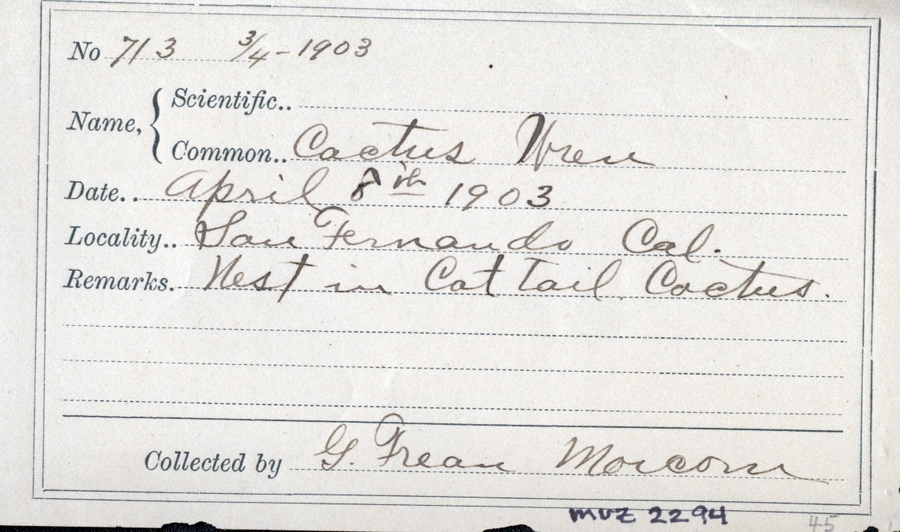 No 713 3/4-1903
Name, { Scientific..
Common.. Cactus Wren
Date.. April 8th 1903
Locality.. San Fernando Cal.
Remarks. Nest in Cat tail Cactus.
Collected by G. Frean Morcom
MVZ 2294
45